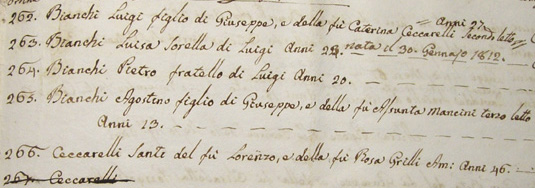 262. Bianchi Luigi figlio di Giuseppe, e della fù Caterina Ceccarelli secondo letto, Anni 27.
263. Bianchi Luisa Sorella di Luigi Anni 24 nata il 30. Gennajo 1812.
264. Bianchi Pietro fratello di Luigi Anni 20.
265. Bianchi Agostino figlio di Giuseppe, e della fù Assunta Mancini terzo letto
Anni 13.
266. Ceccarelli Santi del fù Lorenzo, e della fù Rosa Grilli Am: Anni 46.
267. Ceccarelli